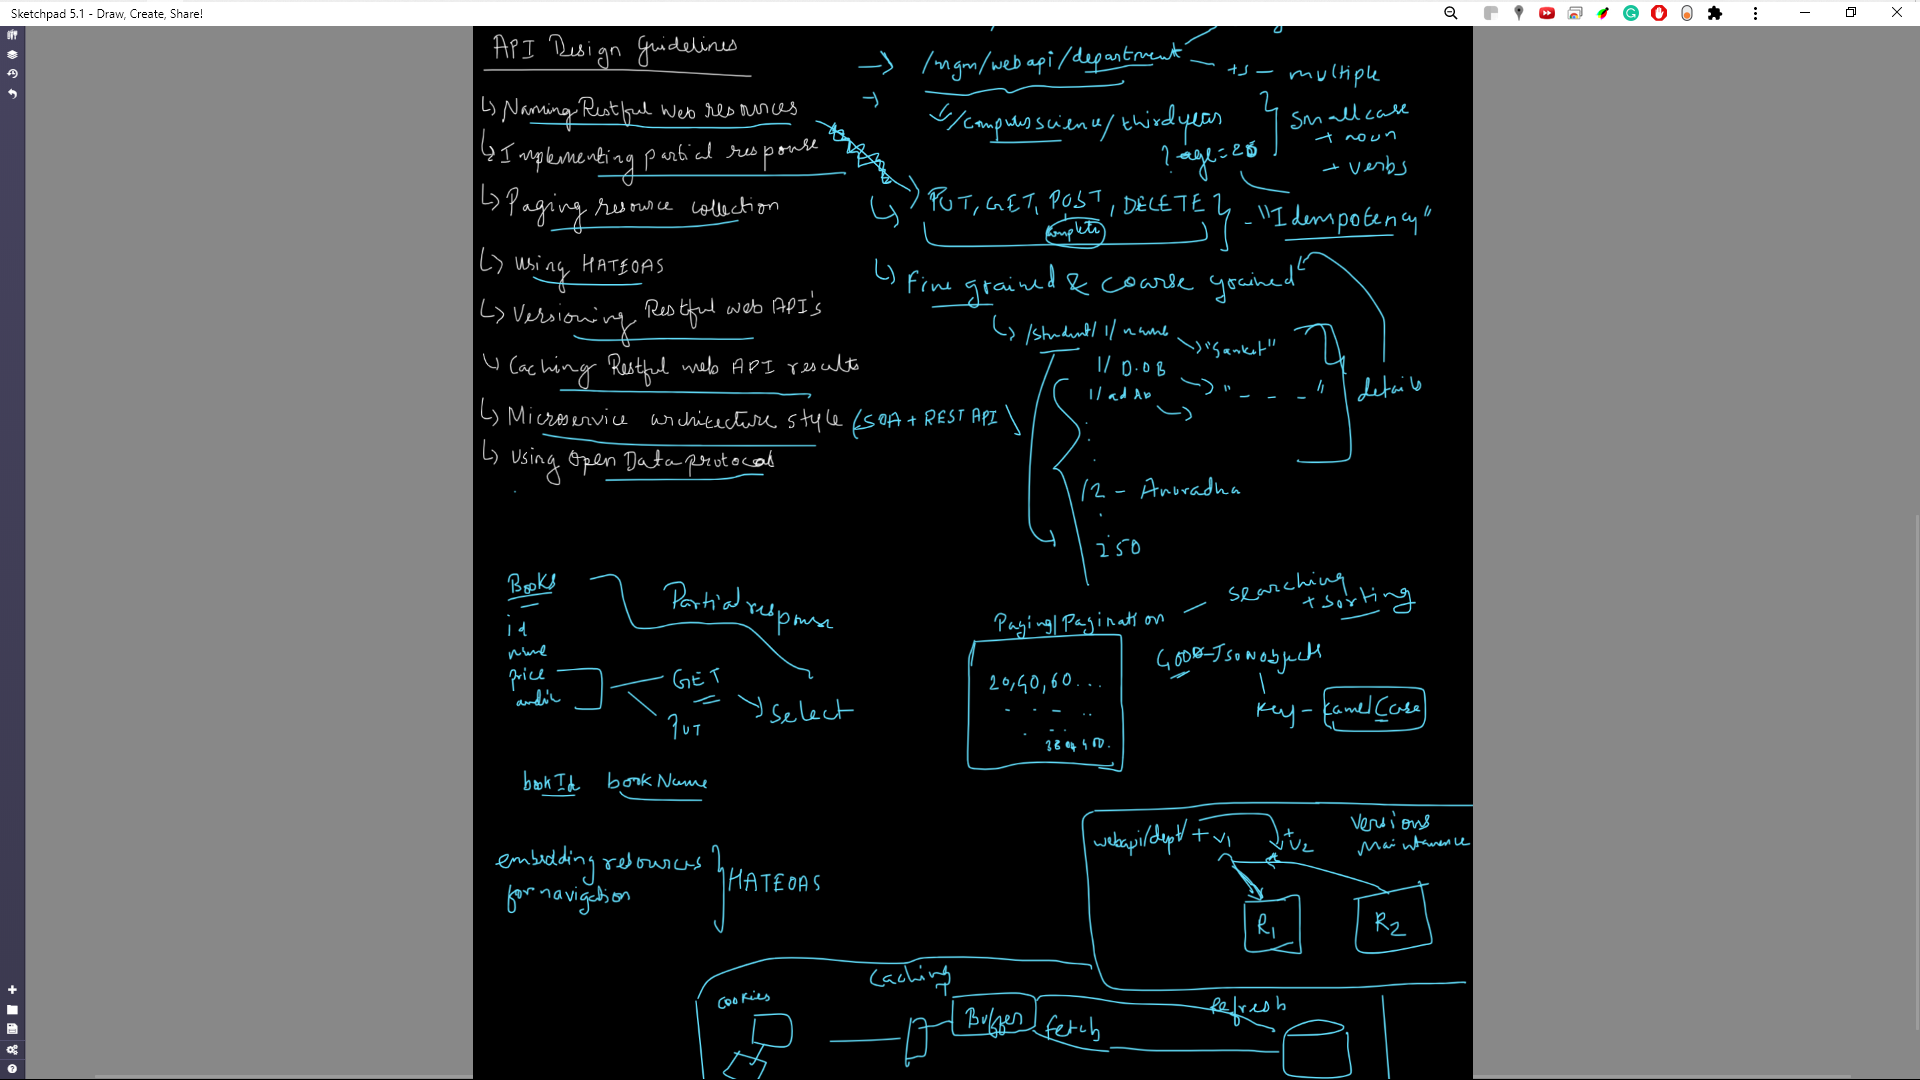 Sketchpad 5.1 - Draw, Create, Share!
API Design Guidelines
Naming Restful web resources
Implementing partial response
Paging resource collection
Using HATEOAS
Versioning Restful web API's
Caching Restful web API results
Microservice architecture style (SOA + REST API)
Using Open Data protocol
/mgm/webapi/department
+s - multiple
/computerscience/thirdyear
? age=20
Smallcase
+ noun
+ verbs
PUT, GET, POST, DELETE } - "Idempotency"
complete
Fine grained & coarse grained
/student/1/name "Sanket"
1/ D.OB " - - - "
details
/2 - Anuradha
250
Books
id
name
price
Partial response
GET
PUT
Select
bookId bookName
Paging/Pagination
searching
+ sorting
20,40,60...
Json objects
key - CamelCase
embedding resources
for navigation
HATEOAS
webapi/dept/ + v1
+ v2
versions
maintanence
R1
R2
Caching
cookies
Buffer
fetch
Refresh